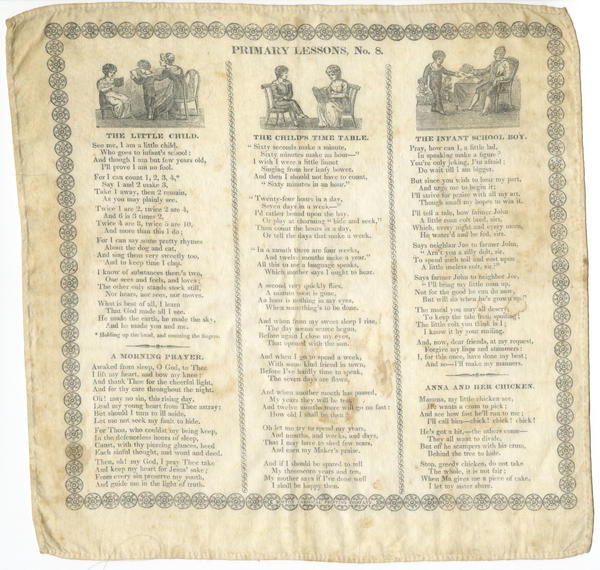 PRIMARY LESSONS, No. 8.
THE LITTLE CHILD.
See me, I am a little child,
Who goes to infant's school:
And though I am but few years old,
I'll prove I am no fool.
For I can count 1, 2, 3, 4,*
Say 1 and 2 make 3,
Take 1 away, then 2 remain,
As you may plainly see.
Twice 1 are 2, twice 2 are 4,
And 6 is 3 times 2,
Twice 4 are 8, twice 5 are 10,
And more than this I do;
For I can say some pretty rhymes
About the dog and cat,
And sing them very sweetly too,
And to keep time I clap.
I know of substances there's two,
One sees and feels, and loves;
The other only stands stock still,
Nor hears, nor sees, nor moves.
What is best of all, I learn
That God made all I see,
He made the earth, he made the sky,
And he made you and me.
* Holding up the hand, and counting the fingers.
A MORNING PRAYER.
Awaked from sleep, O God, to Thee
I lift my heart, and bow my knee;
And thank Thee for the cheerful light,
And for thy care throughout the night.
Oh! may no sin, this rising day,
Lead my young heart from Thee astray;
But should I turn to ill aside,
Let me not seek my fault to hide.
For Thou, who couldst my being keep,
In the defenceless hours of sleep,
Canst, with thy piercing glances, heed
Each sinful thought, and word and deed.
Then, oh! my God, I pray Thee take
And keep my heart for Jesus' sake;
From every sin preserve my youth,
And guide me in the light of truth.
THE CHILD'S TIME TABLE.
"Sixty seconds make a minute,
Sixty minutes make an hour—"
I wish I were a little linnet
Singing from her leafy bower,
And then I should not have to count,
"Sixty minutes in an hour."
"Twenty-four hours in a day,
Seven days in a week—"
I'd rather bound upon the hay,
Or play at charming "hide and seek,"
Than count the hours in a day,
Or tell the days that make a week.
"In a month there are four weeks,
And twelve months make a year,"
All this to me a language speaks,
Which mother says I ought to hear.
A second very quickly flies,
A minute soon is gone,
An hour is nothing in my eyes,
When something's to be done.
And when from my sweet sleep I rise,
The day seems scarce begun,
Before again I close my eyes,
That opened with the sun.
And when I go to spend a week,
With some kind friend in town,
Before I've hardly time to speak,
The seven days are flown.
And when another month has passed,
My years they will be
And twelve months more will go so fast:
How old I shall be then!
Oh let me try to spend my years,
And months, and weeks, and days,
That I may have to shed few tears,
And earn my Maker's praise.
And if I should be spared to tell
My threescore years and ten,
My mother says if I've done well
I shall be happy then.
THE INFANT SCHOOL BOY.
Pray, how can I, a little lad,
In speaking make a figure?
You're only joking, I'm afraid
Do wait till I am bigger.
But since you wish to hear my part,
And urge me to begin it;
I'll strive for praise with all my art,
Though small my hopes to win it.
I'll tell a tale, how farmer John
A little roan colt bred, sirs,
Which, every night and every morn,
He water'd and he fed, sirs.
Says neighbor Joe to farmer John,
"Arn't you a silly dolt, sir,
To spend such toil and cost upon
A little useless colt, sir?"
Says farmer John to neighbor Joe,
"I'll bring my little roan up,
Not for the good he can do now,
But will do when he's grown up."
The moral you may all descry,
To keep the tale from spoiling
The little colt you think is I;
I know it by your smiling.
And, now, dear friends, at my request,
Forgive my lisps and stammers;
I, for this once, have done my best;
And so—I'll make my manners.
ANNA AND HER CHICKEN.
Mamma, my little chicken see,
He wants a crum to pick;
And see how fast he'll run to me;
I'll call him—chick! chick! chick!
He's got a bit,—the others come—
They all want to divide,
But off he scampers with his crum,
Behind the tree to hide.
Stop, greedy chicken, do not take
The whole, it is not fair;
When Ma gives me a piece of cake,
I let my sister share.